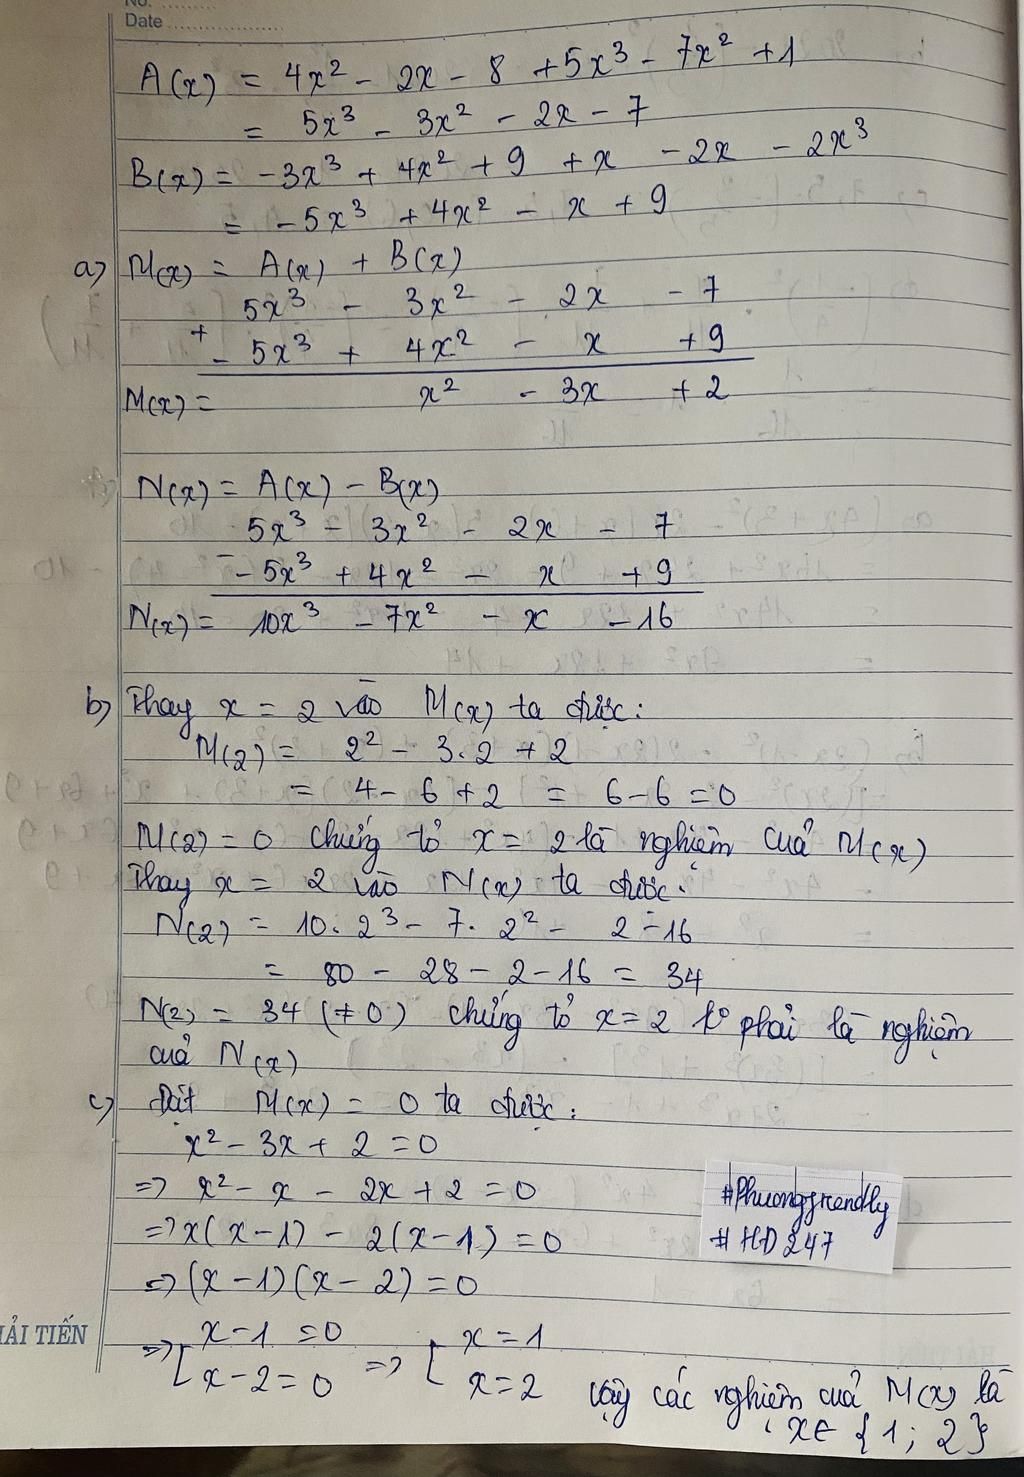 No. ........
Date ....................
A(x) = 4x² - 2x - 8 + 5x³ - 7x² + 1
= 5x³ - 3x² - 2x - 7
B(x) = -3x³ + 4x² + 9 + x - 2x - 2x³
= -5x³ + 4x² - x + 9
a) M(x) = A(x) + B(x)
5x³ - 3x² - 2x - 7
+
- 5x³ + 4x² - x + 9
M(x) = x² - 3x + 2
N(x) = A(x) - B(x)
5x³ - 3x² - 2x - 7
-
- 5x³ + 4x² - x + 9
N(x) = 10x³ - 7x² - x - 16
b) Thay x = 2 vào M(x) ta được:
M(2) = 2² - 3.2 + 2
= 4 - 6 + 2 = 6 - 6 = 0
M(2) = 0 chứng tỏ x = 2 là nghiệm của M(x)
Thay x = 2 vào N(x) ta được:
N(2) = 10. 2³ - 7. 2² - 2 - 16
= 80 - 28 - 2 - 16 = 34
N(2) = 34 (≠ 0) chứng tỏ x = 2 k° phải là nghiệm
của N(x)
c) Đặt M(x) = 0 ta được:
x² - 3x + 2 = 0
=> x² - x - 2x + 2 = 0
=> x(x - 1) - 2(x - 1) = 0
=> (x - 1)(x - 2) = 0
=> [ x - 1 = 0 => [ x = 1
x - 2 = 0 x = 2 Vậy các nghiệm của M(x) là
x ∈ {1; 2}
#Phuongfriendly
#HD247
HẢI TIẾN